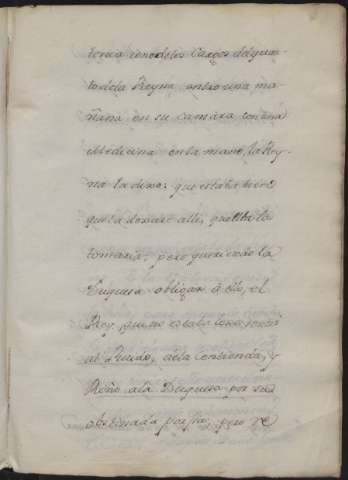 tenia uno de los Cargos del quar-
to de la Reyna entro una ma-
ñana en su camara con una
Medicina en la mano, la Rey-
na la dixo: que estaba bien
que la dexase alli, que ella la
tomaria; pero queriendo la
Duquesa obligar à ello, el
Rey, que no estaba lexos,
al Ruido, de la contienda, y
Riño a la Duquesa por su
obstinada porfia, pero se